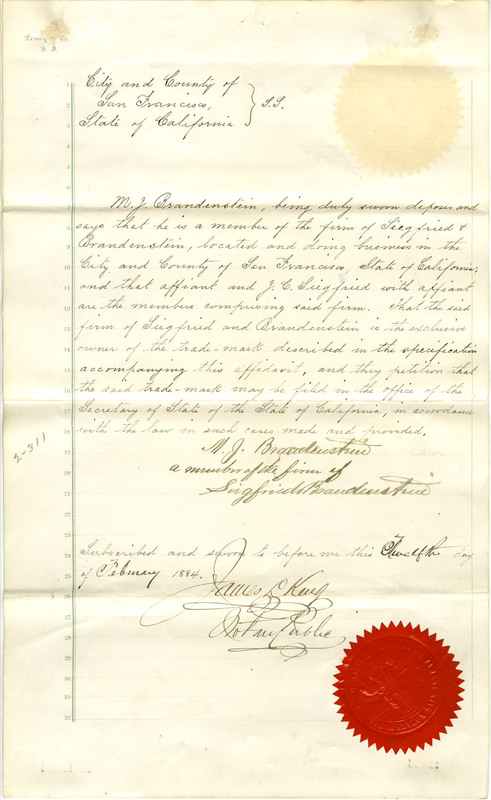 City and County of
San Francisco, } S.S.
State of California
M. J. Brandenstein, being duly sworn deposes and
says that he is a member of the firm of Siegfried &
Brandenstein, located and doing business in the
City and County of San Francisco, State of California;
and that affiant and J. C. Siegfried with affiant
are the members comprising said firm. That the said
firm of Siegfried and Brandenstein is the exclusive
owner of the trade-mark described in the specification
accompanying this affidavit, and they petition that
the said trade-mark may be filed in the office of the
Secretary of State of the State of California, in accordance
with the law in such cases made and provided.
M. J. Brandenstein
a member of the firm of
Siegfried & Brandenstein
2-311
Subscribed and sworn to before me this Twelfth day
of February 1884.
James L. King
Notary Public
1
2
3
4
5
6
7
8
9
10
11
12
13
14
15
16
17
18
19
20
21
22
23
24
25
26
27
28
29
30
31
32